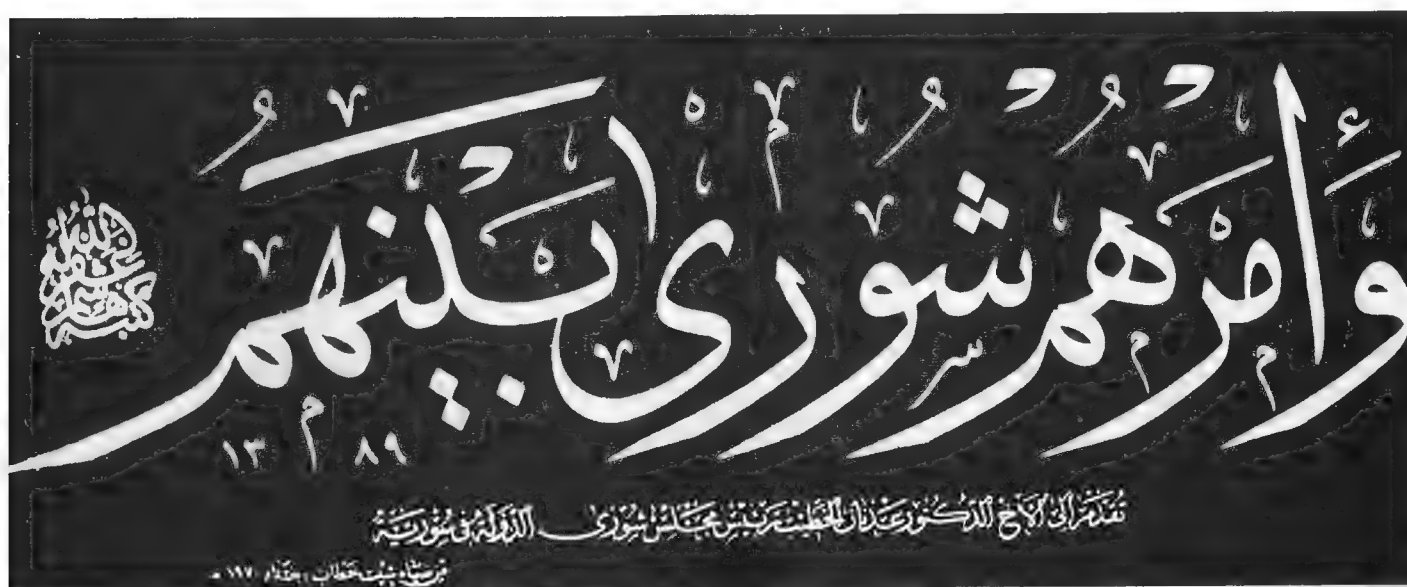 وَأَمْرُهُمْ شُورَىٰ بَيْنَهُمْ
كتبه هاشم
١٣٨٩
تقدم الى الأخ الدكتور عدنان الخطيب رئيس مجلس شورى الدولة في سورية
شيت خطاب بغداد ١٩٧٠ م